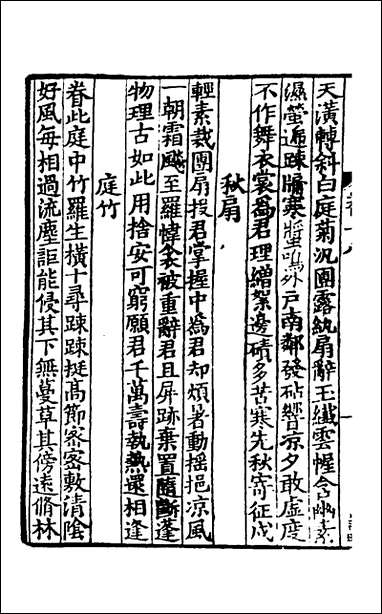 天潢轉斜白庭菊沉團露紈扇辭玉纖雲幄含幽素
濕螢遍疎牖寒螿鳴外戶南鄰發砧響凉夕敢虛度
不作舞衣裳為君理繒絮邊磧多苦寒先秋寄征戍
秋扇
輕素裁團扇投君掌握中為君却煩暑動揺挹凉風
一朝霜颷至羅幃衾被重辭君且屏跡棄置隨斷蓬
物理古如此用捨安可窮願君千萬壽執熱還相逢
庭竹
眷此庭中竹羅生橫十尋踈踈挺高節密密敷清陰
好風每相過流塵詎能侵其下無蔓草其傍遠脩林